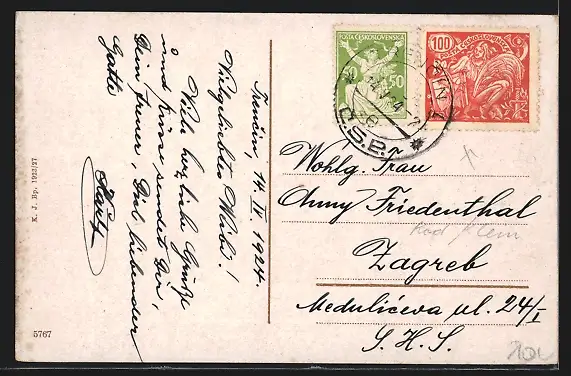 Trenčín, 14 IV 1924.
Vielgeliebtes Weibi!
Viele herzliche Grüße
und Küsse sendet Dir,
Dein treuer, Dich liebender
Gatte
K. J. Bp. 1923/27
5767
POŠTA ČESKOSLOVENSKÁ
50 50
100
POŠTA ČESKOSLOVENSKÁ
Č.S.P.
Wohlg. Frau
Anny Friedenthal
Zagreb
Medulićeva ul. 24/I
S. H. S.